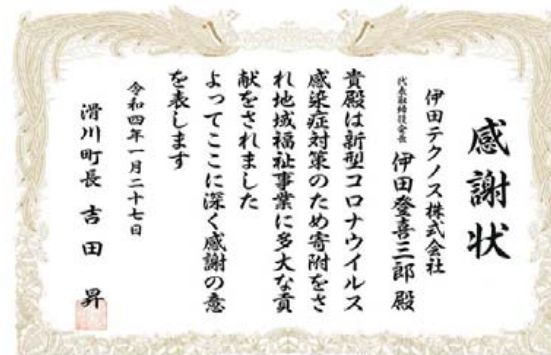 感謝状
伊田テクノス株式会社
代表取締役会長 伊田登喜三郎 殿
貴殿は新型コロナウイルス
感染症対策のため寄附をさ
れ地域福祉事業に多大な貢
献をされました
よってここに深く感謝の意
を表します
令和四年一月二十七日
滑川町長 吉田 昇